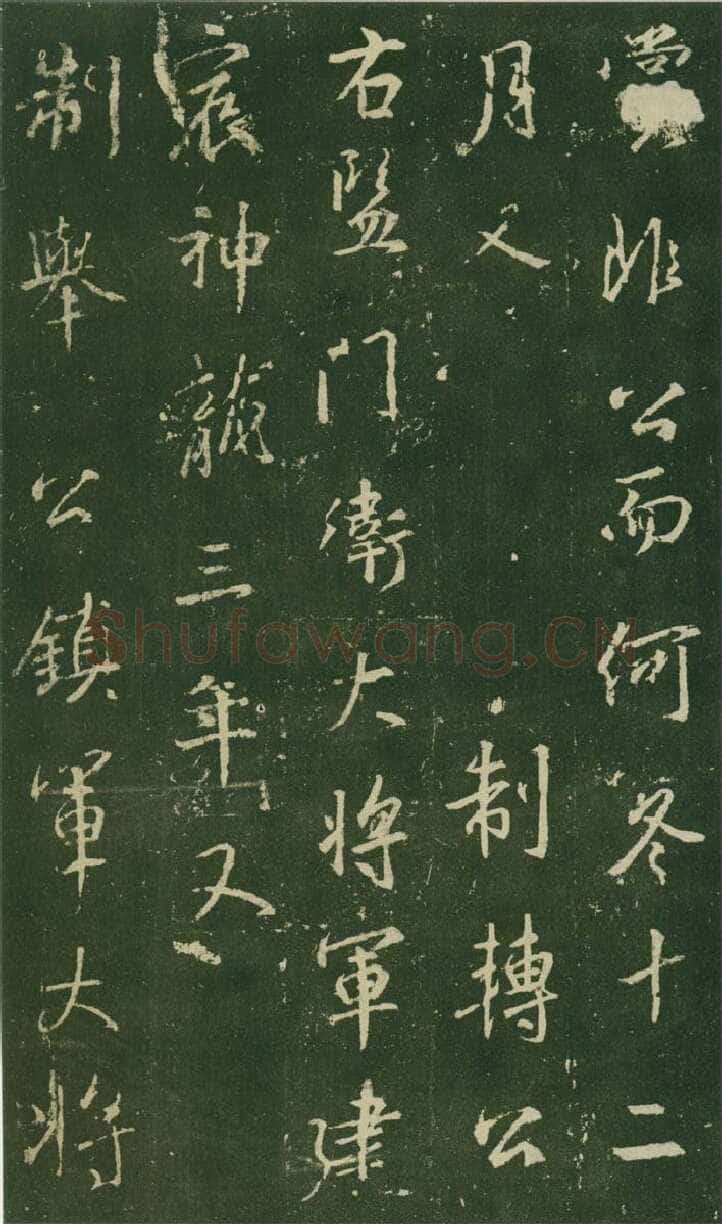 賞非公而何冬十二
月又 制轉公
右監門衛大將軍建
宸神龍三年又
制舉公鎮軍大將
Shufawang.CN